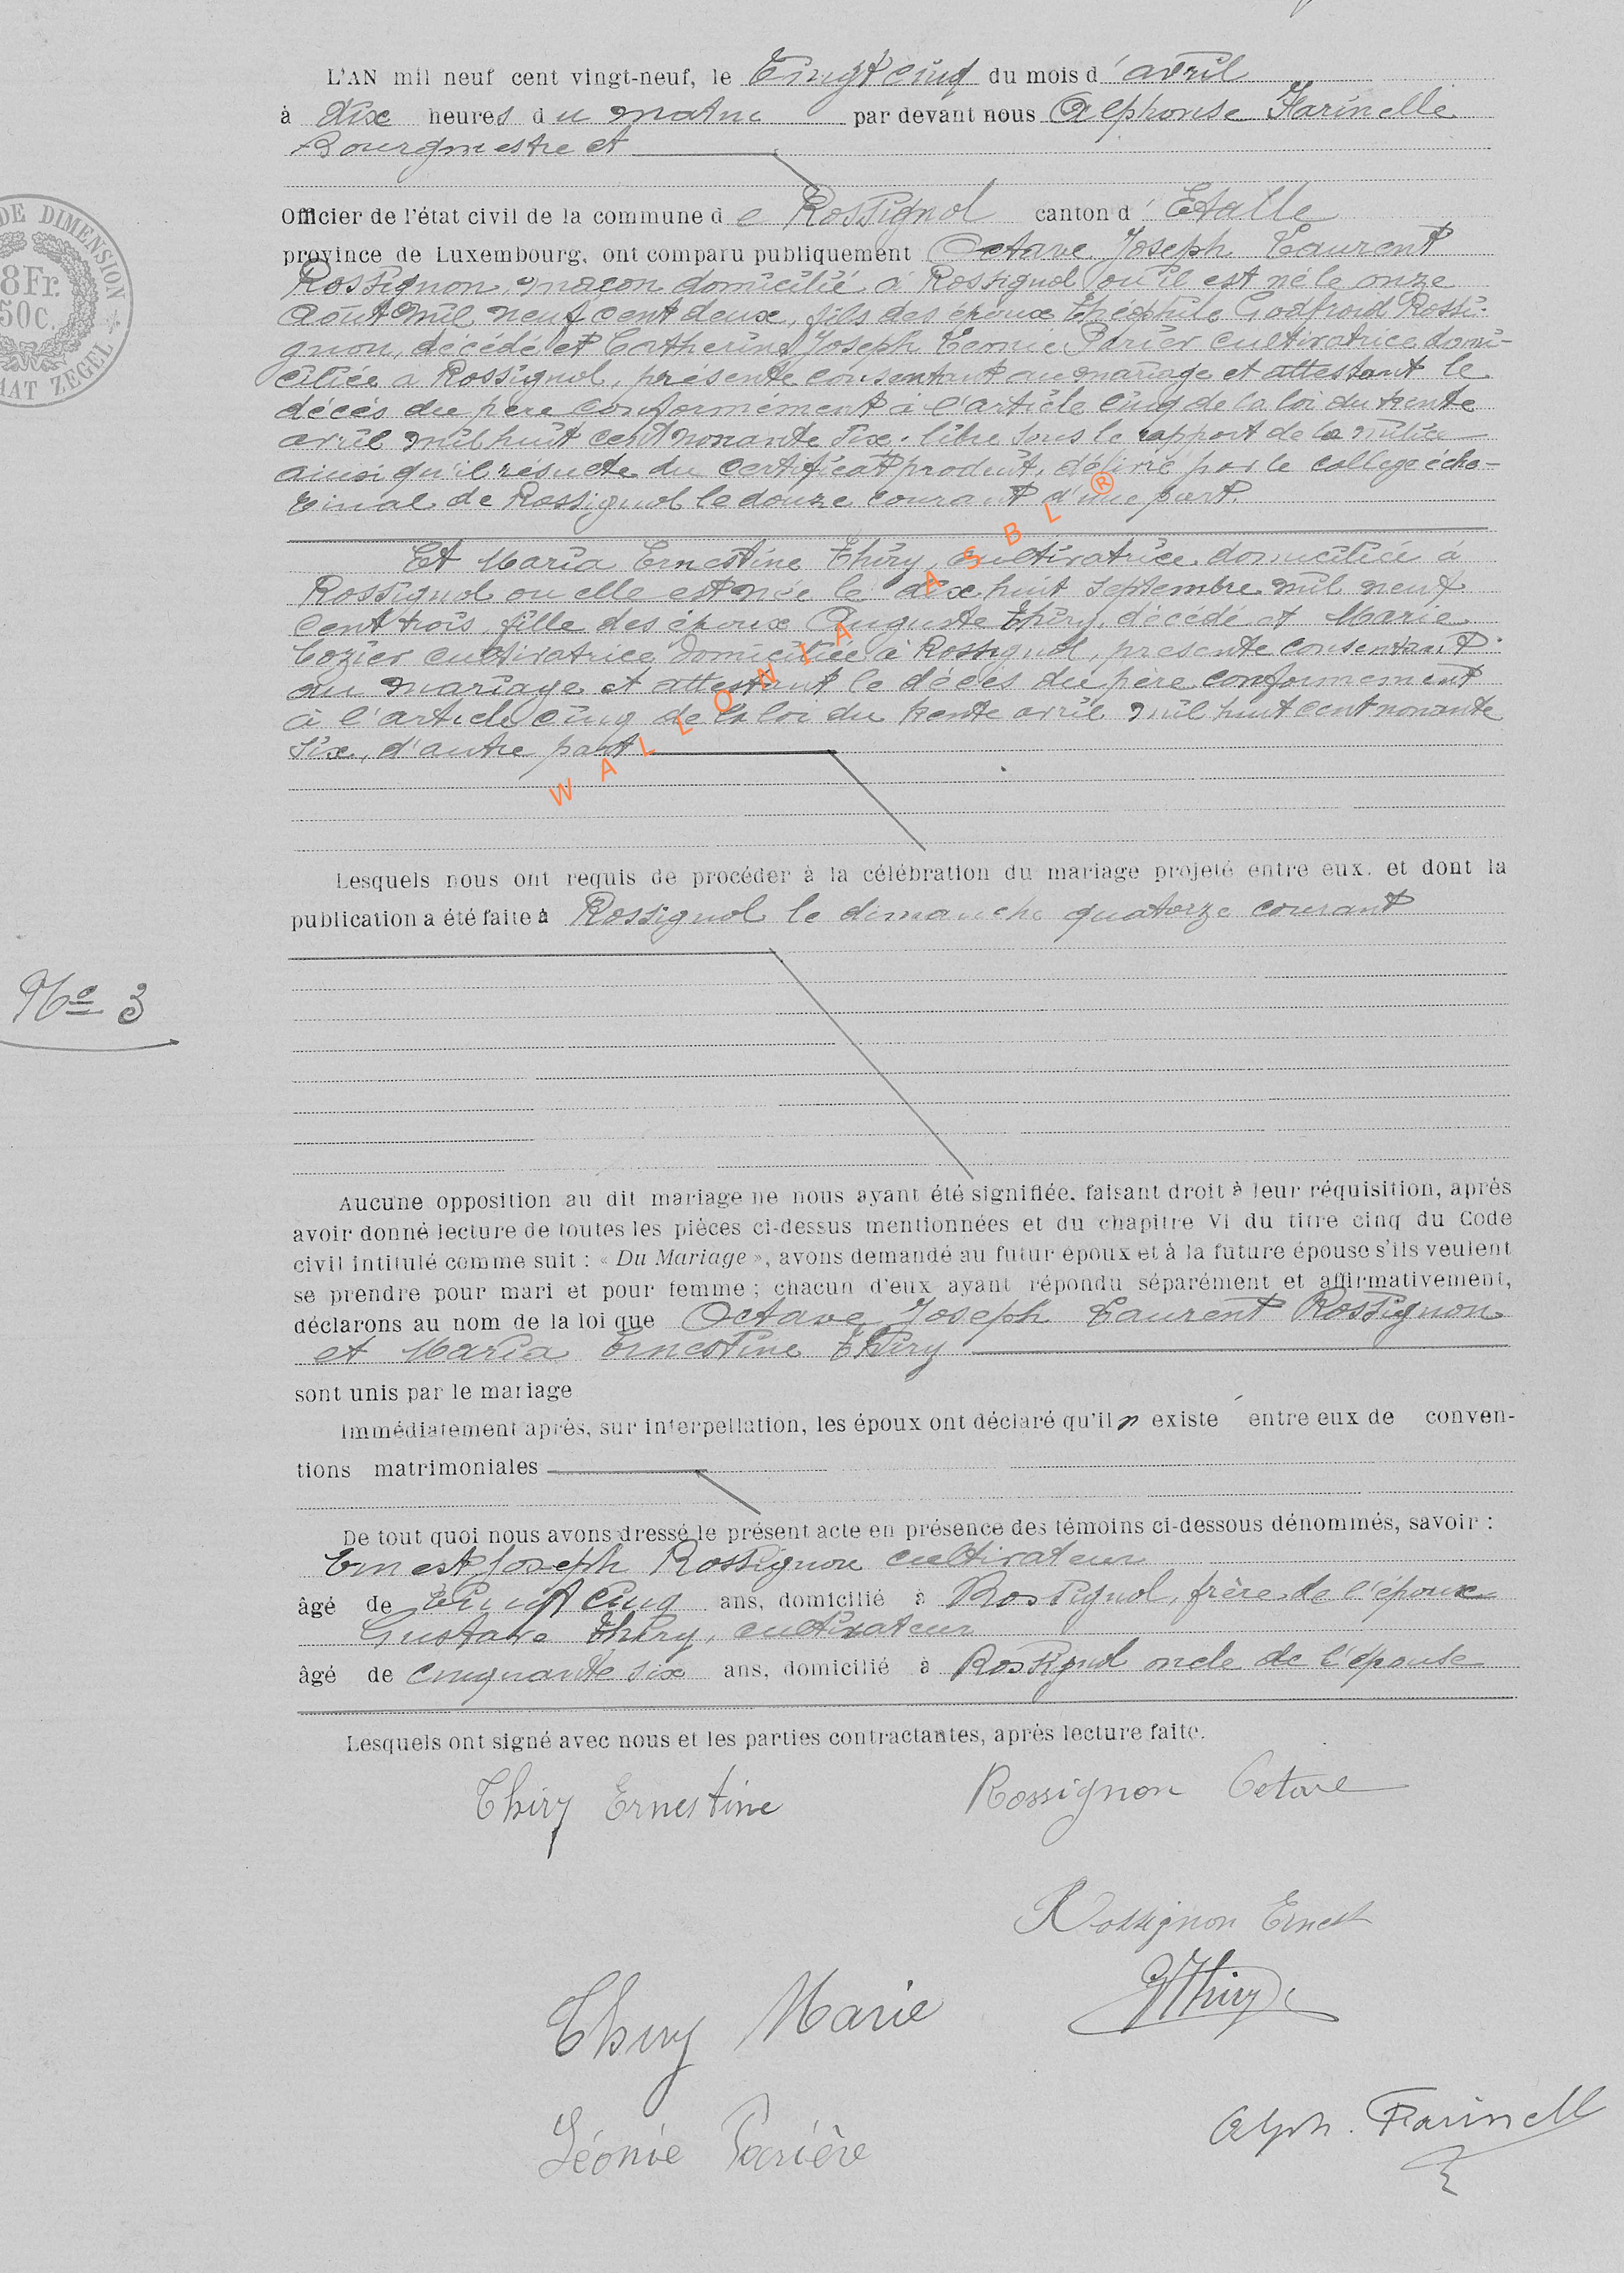 L'AN mil neuf cent vingt-neuf, le Vingt cinq du mois d'avril
à dix heures du matin par devant nous Alphonse Farinelle
Bourgmestre et
Officier de l'état civil de la commune de Rossignol canton d'Etalle
province de Luxembourg, ont comparu publiquement Octave Joseph Laurent
Rossignon, maçon domicilié à Rossignol où il est né le onze
Août mil neuf cent deux, fils des époux Théophile Godfroid Rossi-
gnon, décédé et Catherine Joseph Léonie Parier cultivatrice domi-
ciliée à Rossignol, présente consentant au mariage et attestant le
décès du père conformément à l'article cinq de la loi du trente
avril mil huit cent nonante six. libre sous le rapport de la milice
ainsi qu'il résulte du certificat produit, délivré par le collège éche-
vinal de Rossignol le douze courant d'une part.
Et Maria Ernestine Thiry, cultivatrice domiciliée à
Rossignol où elle est née le dix huit septembre mil neuf
cent trois, fille des époux Auguste Thiry, décédé et Marie
Lozier cultivatrice domiciliée à Rossignol, présente consentant
au mariage et attestant le décès du père conformément
à l'article cinq de la loi du trente avril mil huit cent nonante
six, d'autre part
WALLONIA ASBL ®
Lesquels nous ont requis de procéder à la célébration du mariage projeté entre eux. et dont la
publication a été faite à Rossignol le dimanche quatorze courant
No 3
Aucune opposition au dit mariage ne nous ayant été signifiée, faisant droit à leur réquisition, après
avoir donné lecture de toutes les pièces ci-dessus mentionnées et du chapitre VI du titre cinq du Code
civil intitulé comme suit : « Du Mariage », avons demandé au futur époux et à la future épouse s'ils veulent
se prendre pour mari et pour femme ; chacun d'eux ayant répondu séparément et affirmativement,
déclarons au nom de la loi que Octave Joseph Laurent Rossignon
et Maria Ernestine Thiry
sont unis par le mariage
Immédiatement après, sur interpellation, les époux ont déclaré qu'il n existé entre eux de conven-
tions matrimoniales
De tout quoi nous avons dressé le présent acte en présence des témoins ci-dessous dénommés, savoir :
Ernest Joseph Rossignon cultivateur
âgé de Vingt cinq ans, domicilié à Rossignol, frère de l'époux
Gustave Thiry, cultivateur
âgé de cinquante six ans, domicilié à Rossignol oncle de l'épouse
Lesquels ont signé avec nous et les parties contractantes, après lecture faite.
Thiry Ernestine Rossignon Octave
Rossignon Ernest
Thiry Marie GThiry
Léonie Parière Alph. Farinelle
DE DIMENSION
8Fr.
50c.
MAT ZEGEL